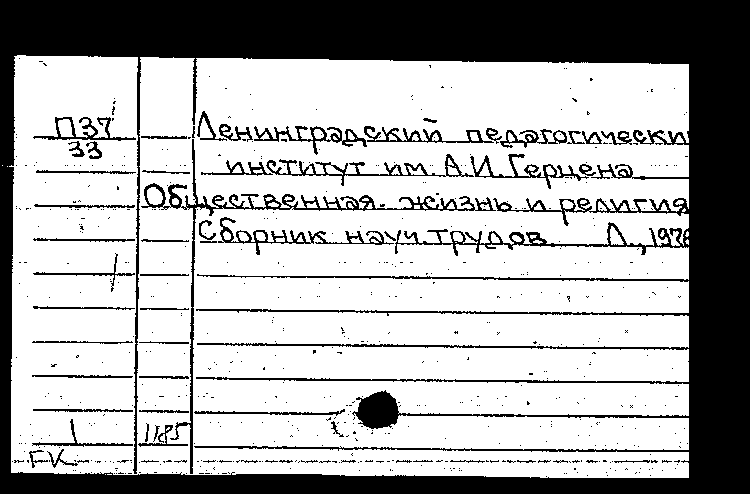 П37 Ленинградский педагогически
33 институт им. А.И. Герцена.
Общественная жизнь и религия
Сборник науч. трудов. Л., 1976
1 1185
ГК